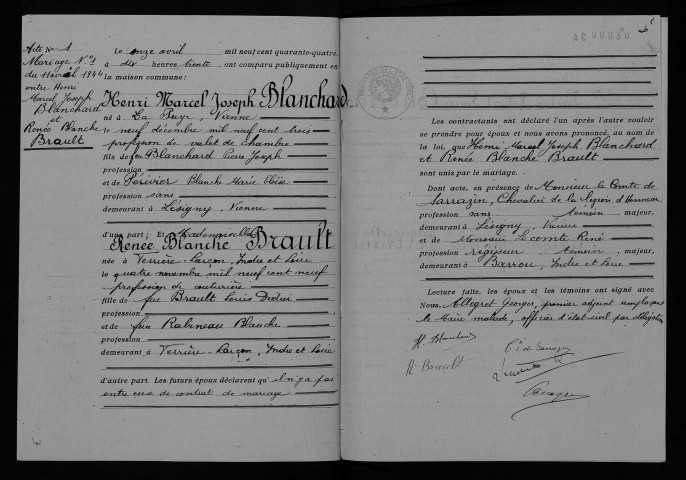 Acte No 1
Mariage N°1
du 11 avril 1944
entre Henri
Marcel Joseph
Blanchard
et
Renée Blanche
Brault
Le onze avril mil neuf cent quarante-quatre,
à dix heures trente, ont comparu publiquement en
la maison commune:
Henri Marcel Joseph Blanchard
né à La Puye, Vienne
le neuf décembre mil neuf cent trois
profession de valet de chambre
fils de feu Blanchard Pierre Joseph
profession
et de Périvier Blanche Marie
profession sans
demeurant à Lésigny, Vienne
d'une part; Et Mademoiselle
Renée Blanche Brault
née à Ferrière-Larçon, Indre et Loire
le quatre novembre mil neuf cent neuf
profession de couturière
fille de feu Brault Louis Didier
profession
et de feu Rabineau Blanche
profession
demeurant à Ferrière-Larçon, Indre et Loire
d'autre part. Les futurs époux déclarent qu'il n'a pas
entre eux de contrat de mariage
Les contractants ont déclaré l'un après l'autre vouloir
se prendre pour époux et nous avons prononcé, au nom de
la loi, que Henri Marcel Joseph Blanchard
et Renée Blanche Brault
sont unis par le mariage.
Dont acte, en présence de Monsieur le Comte de
Sarrazin, Chevalier de la légion d'honneur
profession sans témoin, majeur.
demeurant à Lésigny, Vienne
et de Monsieur Le comte René
profession régisseur témoin, majeur.
demeurant à Barrou, Indre et Loire
Lecture faite, les époux et les témoins ont signé avec
Nous, Allegret Georges, premier adjoint remplaçant
le Maire malade, officier d'état-civil par délégation
H. Blanchard
Cte de Sarrazin
R Brault